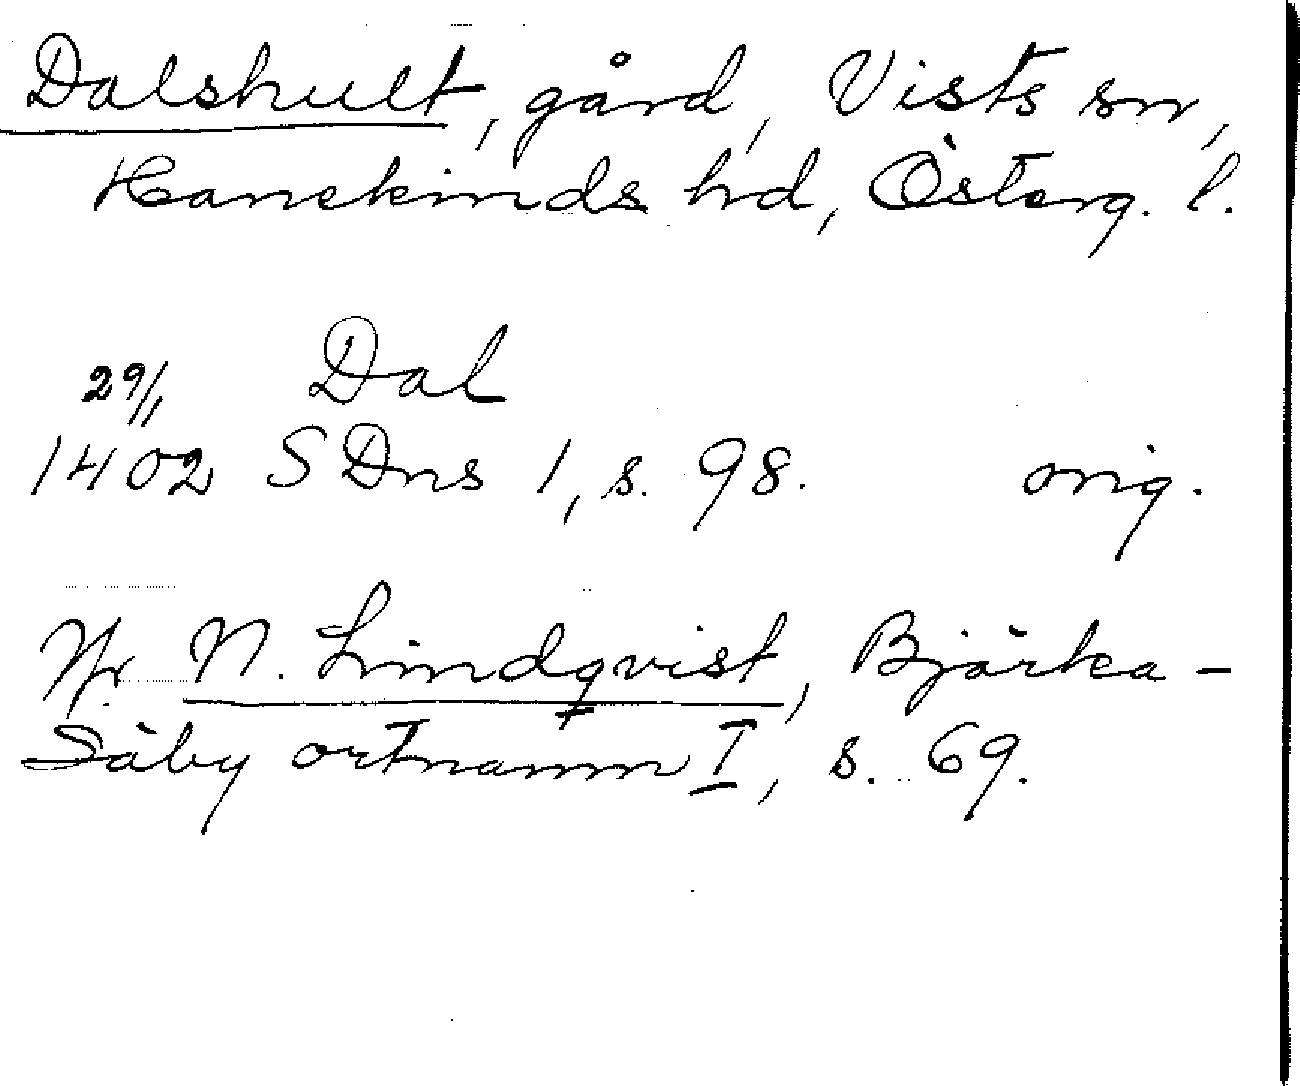 Dalshult, gård, Vists sn,
Hanekinds hd, Österg. l.
29/1 Dal
1402 SDns 1, s. 98. orig.
Jfr N. Lindqvist, Bjärka-
Säby ortnamn I, s. 69.